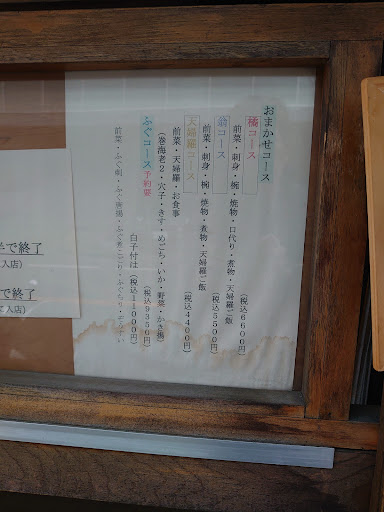 おまかせコース
橘コース
前菜・刺身・椀・焼物・口代り・煮物・天婦羅ご飯
(税込6600円)
前菜・刺身・椀・焼物・煮物・天婦羅ご飯
(税込5500円)
天婦羅コース
前菜・天婦羅・お食事
(税込4400円)
(巻海老2・穴子・きす・めごち・いか・野菜・かき揚)
ふぐコース 予約要
(税込9350円)
白子付は(税込11000円)
前菜・ふぐ刺・ふぐ唐揚・ふぐ煮こごり・ふぐちり・ぞうすい
で終了
入店)
で終了
入店)